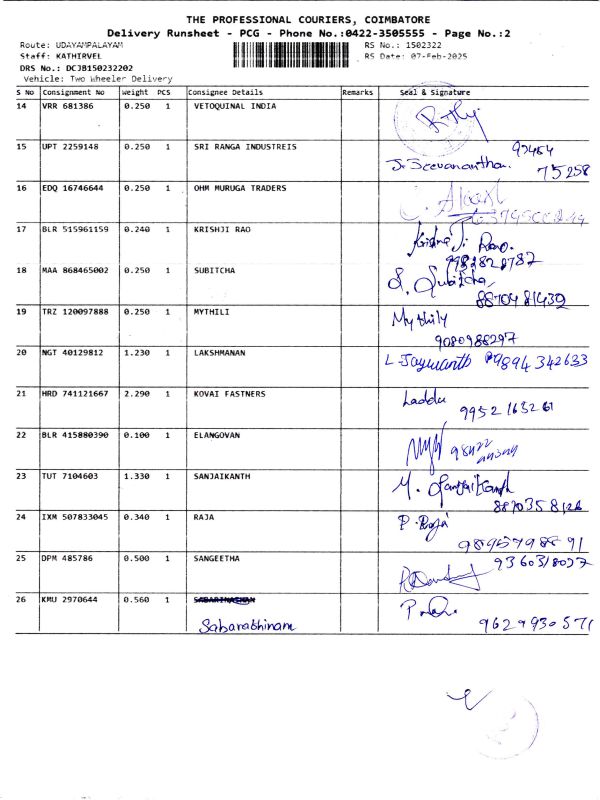 THE PROFESSIONAL COURIERS, COIMBATORE
Delivery Runsheet - PCG - Phone No.:0422-3505555 - Page No.:2
Route: UDAYAMPALAYAM RS No.: 1502322
Staff: KATHIRVEL RS Date: 07-Feb-2025
DRS No.: DCJB150232202
Vehicle: Two Wheeler Delivery
S No Consignment No Weight PCS Consignee Details Remarks Seal & Signature
14 VRR 681386 0.250 1 VETOQUINAL INDIA
15 UPT 2259148 0.250 1 SRI RANGA INDUSTREIS
J. Jeevanantham. 75258
16 EDQ 16746644 0.250 1 OHM MURUGA TRADERS
17 BLR 515961159 0.240 1 KRISHJI RAO
Krishna Ji Rao.
18 MAA 868465002 0.250 1 SUBITCHA
S. Subitcha,
8870481439
19 TRZ 120097888 0.250 1 MYTHILI Mythily
9080988297
20 NGT 40129812 1.230 1 LAKSHMANAN L-Jaywanth 9894342633
21 HRD 741121667 2.290 1 KOVAI FASTNERS Laddu
9952163261
22 BLR 415880390 0.100 1 ELANGOVAN
23 TUT 7104603 1.330 1 SANJAIKANTH M. Sanjaikanth
24 IXM 507833045 0.340 1 RAJA P. Raja
25 DPM 485786 0.500 1 SANGEETHA
26 KMU 2970644 0.560 1
Sabarathinam 9629930571